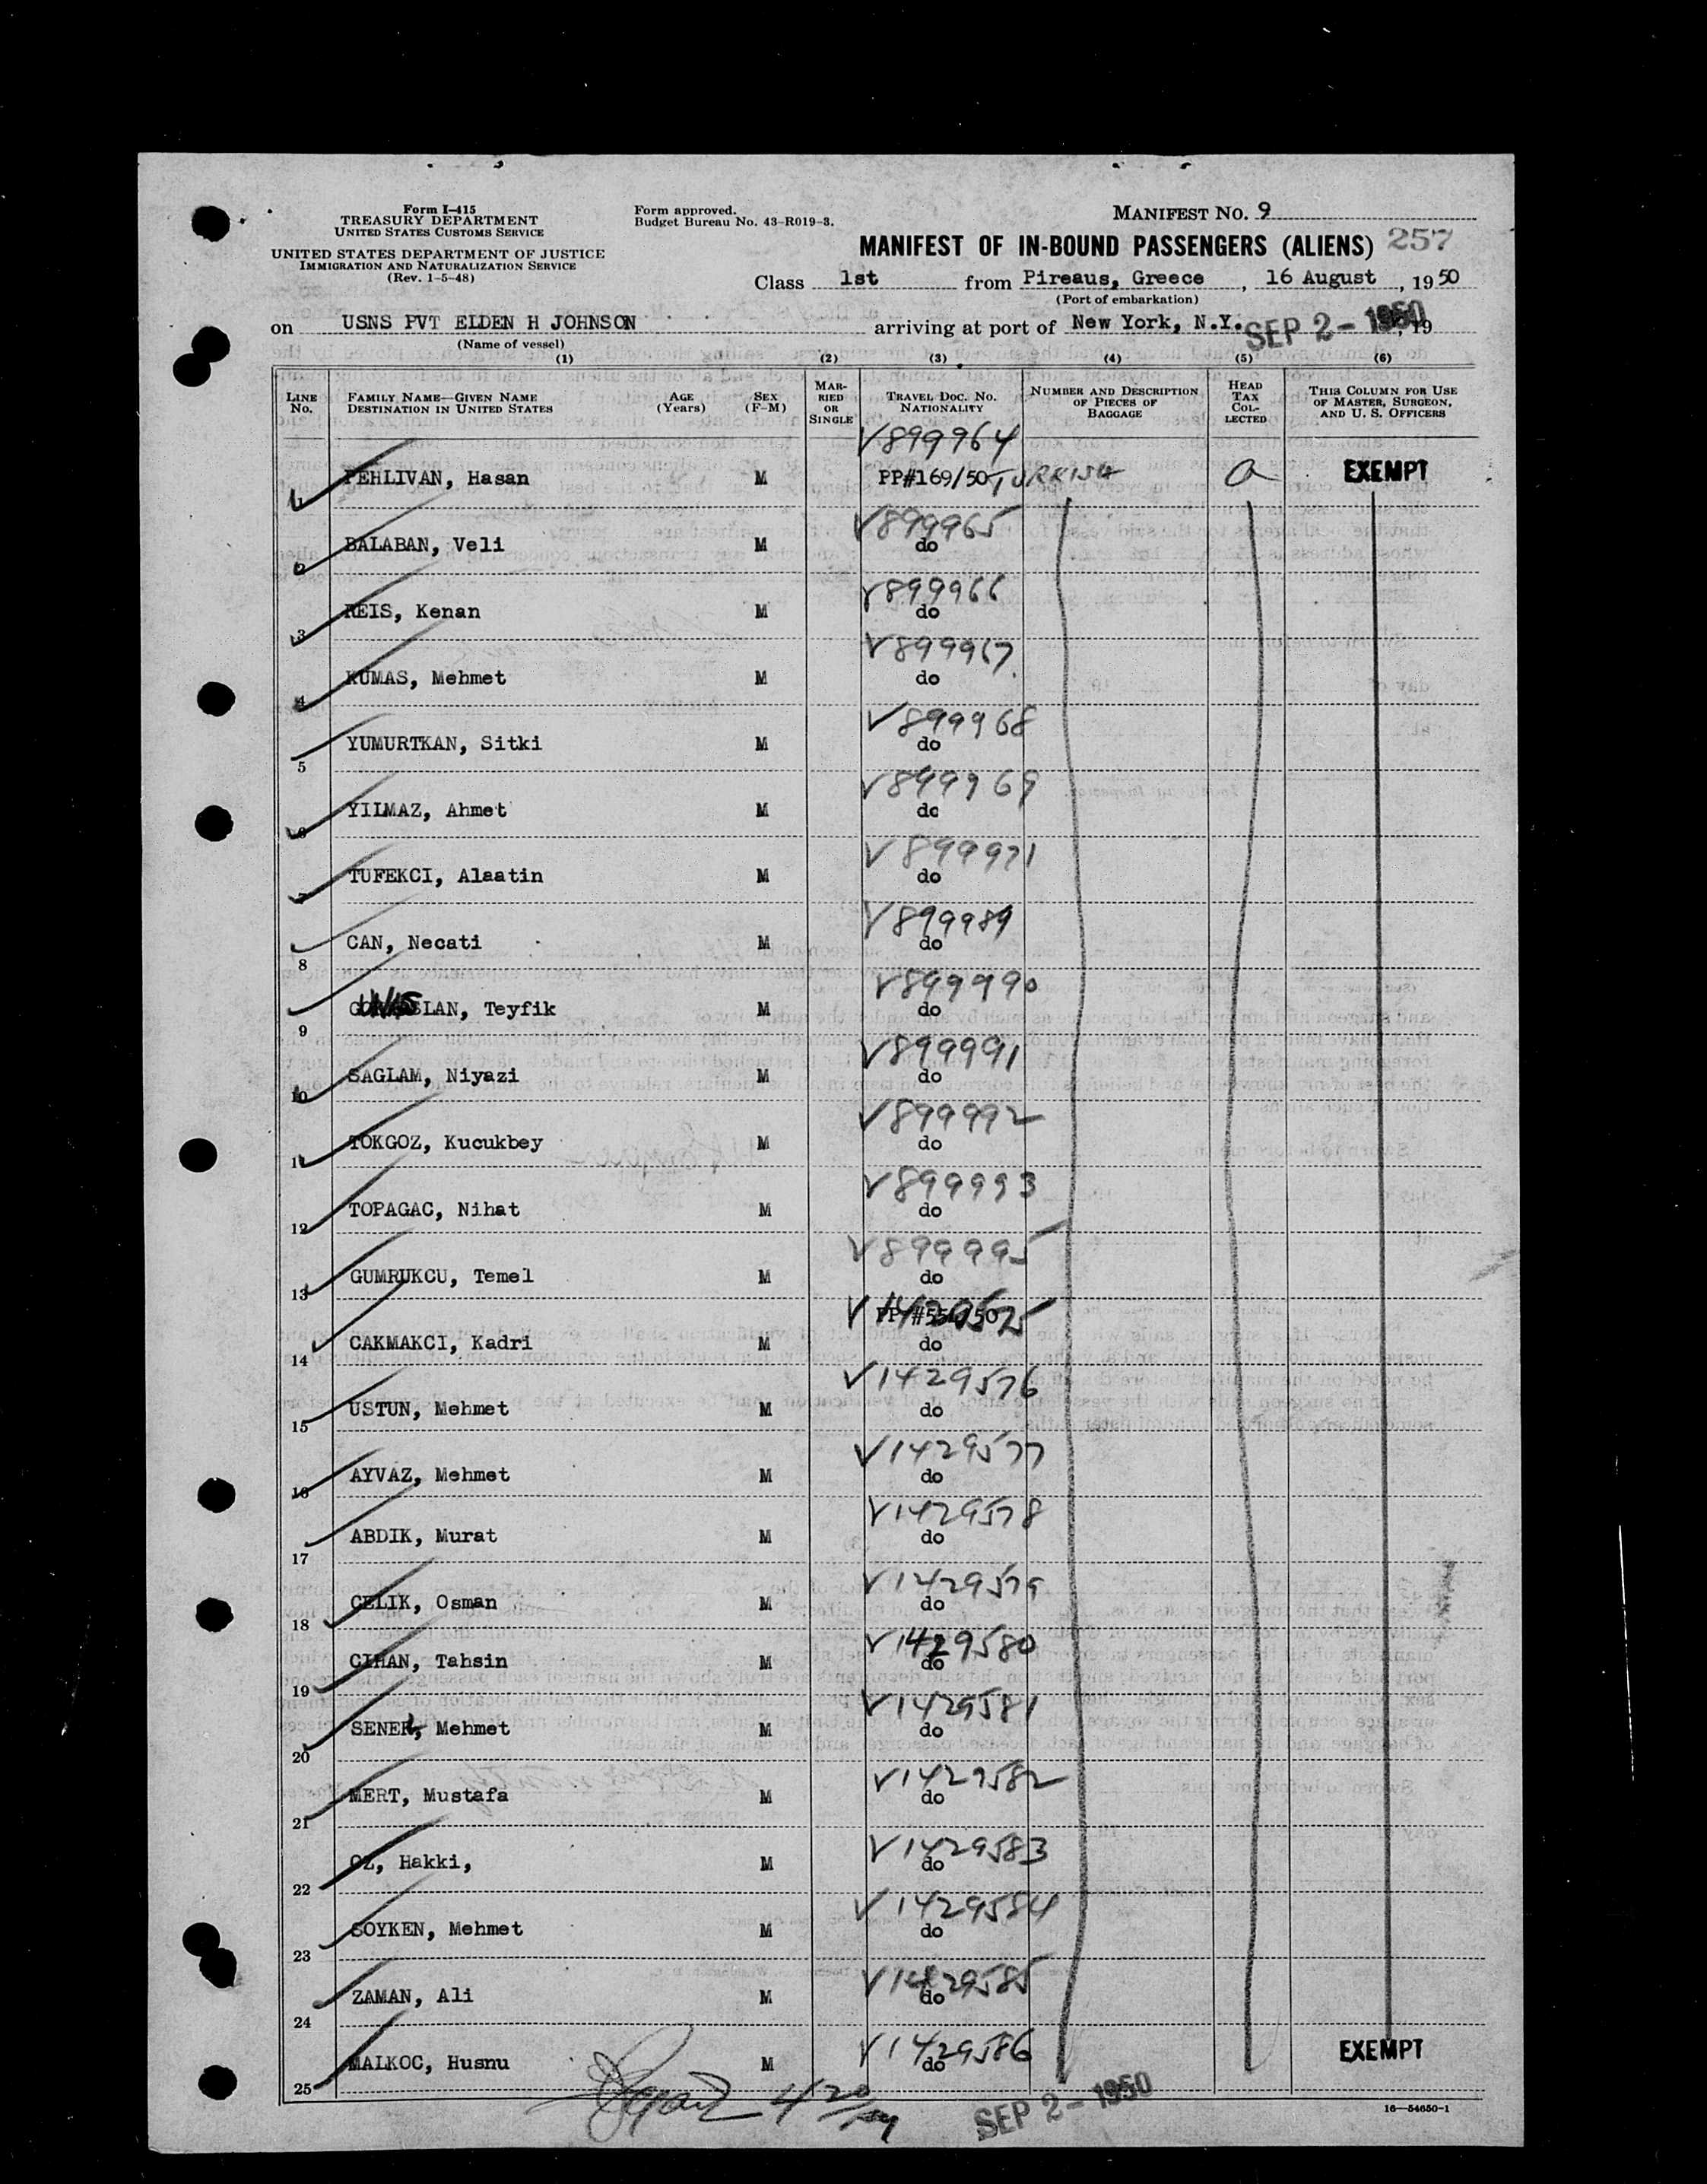 Form I-415
TREASURY DEPARTMENT
UNITED STATES CUSTOMS SERVICE
UNITED STATES DEPARTMENT OF JUSTICE
IMMIGRATION AND NATURALIZATION SERVICE
(Rev. 1-5-48)
Form approved.
Budget Bureau No. 43-R019-3.
MANIFEST No. 9
MANIFEST OF IN-BOUND PASSENGERS (ALIENS) 257
Class 1st from Pireaus, Greece, 16 August, 1950
(Port of embarkation)
on USNS PVT ELDEN H JOHNSON arriving at port of New York, N.Y. SEP 2- 1950, 19
(Name of vessel)
(1) (2) (3) (4) (5) (6)
LINE No. FAMILY NAME—GIVEN NAME DESTINATION IN UNITED STATES AGE (Years) SEX (F-M) MARRIED OR SINGLE TRAVEL DOC. NO. NATIONALITY NUMBER AND DESCRIPTION OF PIECES OF BAGGAGE HEAD TAX COLLECTED THIS COLUMN FOR USE OF MASTER, SURGEON, AND U. S. OFFICERS
V899964
1 PEHLIVAN, Hasan M PP#169/50 TURKISH EXEMPT
V899965
2 BALABAN, Veli M do
V899966
3 REIS, Kenan M do
V899967
4 KUMAS, Mehmet M do
V899968
5 YUMURTKAN, Sitki M do
V899969
6 YILMAZ, Ahmet M do
V899971
7 TUFEKCI, Alaatin M do
V899989
8 CAN, Necati M do
V899990
9 Teyfik M do
V899991
10 SAGLAM, Niyazi M do
V899992
11 TOKGOZ, Kucukbey M do
V899993
12 TOPAGAC, Nihat M do
V899995
13 GUMRUKCU, Temel M do
14 CAKMAKCI, Kadri M do
V1429576
15 USTUN, Mehmet M do
V1429577
16 AYVAZ, Mehmet M do
V1429578
17 ABDIK, Murat M do
V1429579
18 CELIK, Osman M do
V1429580
19 CIHAN, Tahsin M do
V1429581
20 SENER, Mehmet M do
V1429582
21 MERT, Mustafa M do
V1429583
22 OZ, Hakki, M do
V1429584
23 SOYKEN, Mehmet M do
V1429585
24 ZAMAN, Ali M do
V1429586
25 MALKOC, Husnu M do EXEMPT
SEP 2- 1950
16—54650-1